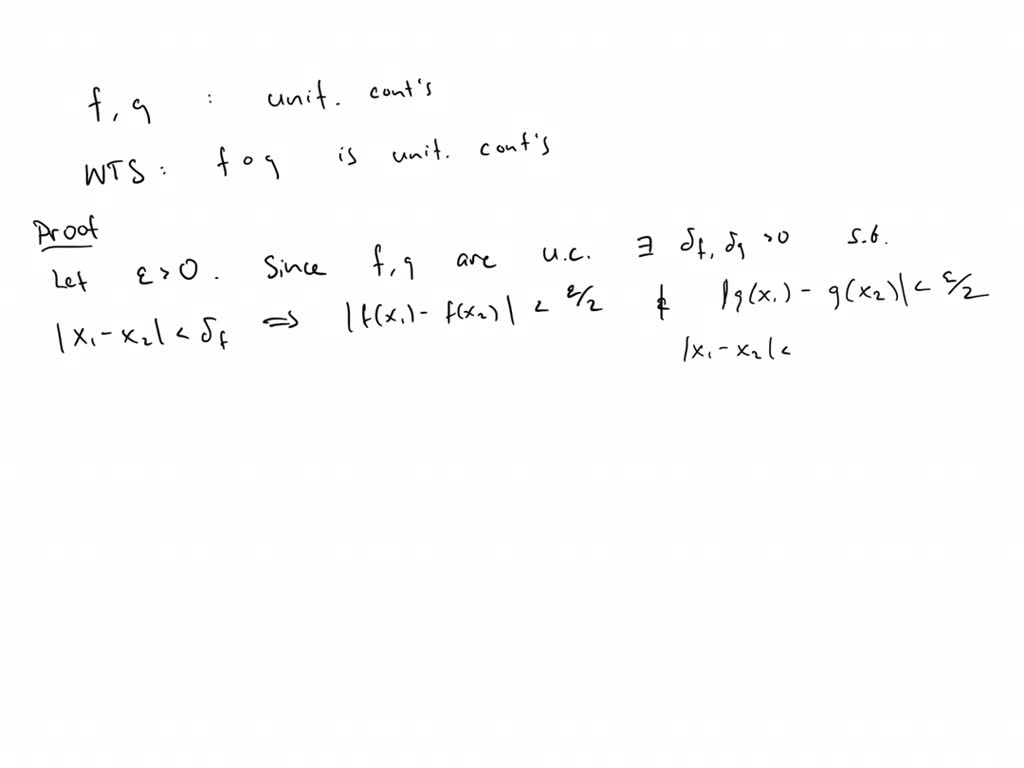 f, g : unit. cont's
WTS : f ∘ g is unit. cont's
Proof
Let ε > 0. Since f, g are u.c. ∃ δf, δg > 0 s.t.
|x₁ - x₂| < δf ⇒ |f(x₁) - f(x₂)| < ε/2 & |g(x₁) - g(x₂)| < ε/2
|x₁ - x₂| <